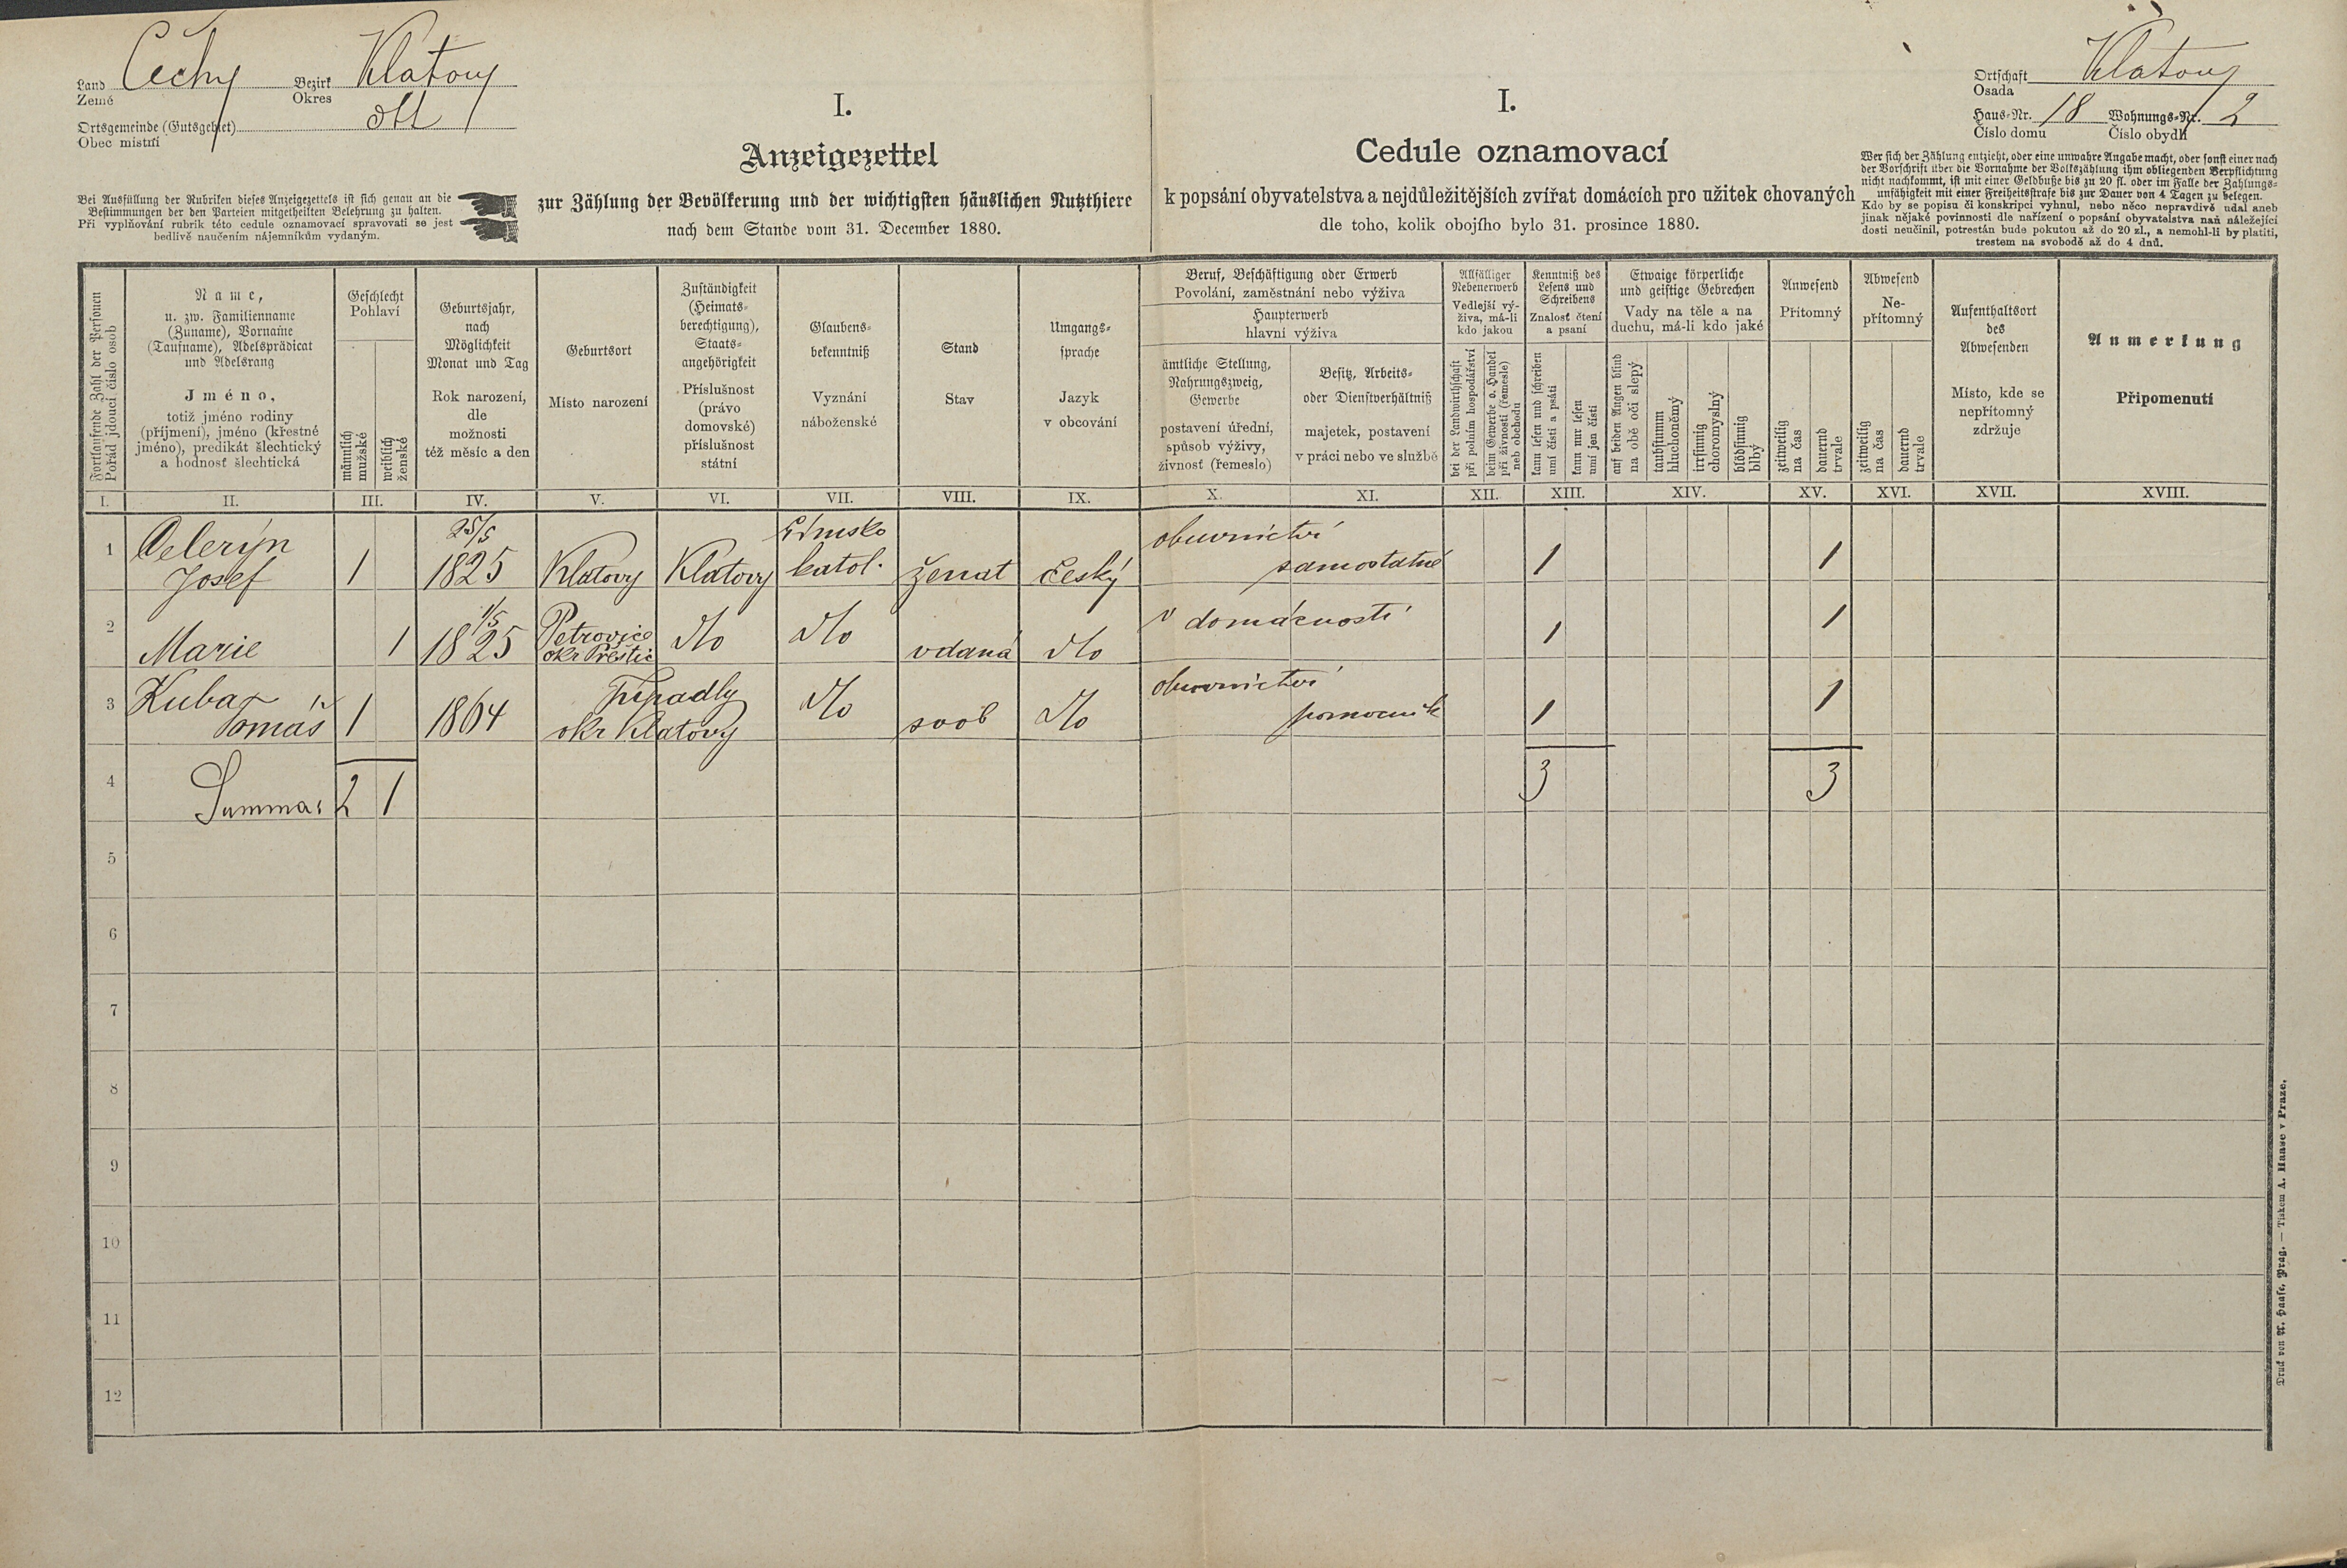 Land Čechy Bezirk Klatovy
Země Okres
Ortsgemeinde (Gutsgebiet) dtt
Obec místní
I.
Anzeigezettel
Bei Ausfüllung der Rubriken dieses Anzeigezettels ist sich genau an die
Bestimmungen der den Parteien mitgetheilten Belehrung zu halten.
Při vyplňování rubrik této cedule oznamovací spravovati se jest
bedlivě naučením nájemníkům vydaným.
zur Zählung der Bevölkerung und der wichtigsten häuslichen Nutzthiere
nach dem Stande vom 31. December 1880.
I.
Cedule oznamovací
k popsání obyvatelstva a nejdůležitějších zvířat domácích pro užitek chovaných
dle toho, kolik obojího bylo 31. prosince 1880.
Ortschaft Klatovy
Osada
Haus-Nr. 18 Wohnungs-Nr. 2
Číslo domu Číslo obydlí
Wer sich der Zählung entzieht, oder eine unwahre Angabe macht, oder sonst einer nach
der Vorschrift über die Vornahme der Volkszählung ihm obliegenden Verpflichtung
nicht nachkommt, ist mit einer Geldbuße bis zu 20 fl. oder im Falle der Zahlungs-
unfähigkeit mit einer Freiheitsstrafe bis zur Dauer von 4 Tagen zu belegen.
Kdo by se popisu či konskripci vyhnul, nebo něco nepravdivě udal aneb
jinak nějaké povinnosti dle nařízení o popsání obyvatelstva naň náležející
dosti neučinil, potrestán bude pokutou až do 20 zl., a nemohl-li by platiti,
trestem na svobodě až do 4 dnů.
Fortlaufende Zahl der Personen
Pořád jdoucí číslo osob
Name,
u. zw. Familienname
(Zuname), Vorname
(Taufname), Adelsprädicat
und Adelsrang
Jméno,
totiž jméno rodiny
(příjmení), jméno (křestné
jméno), predikát šlechtický
a hodnosť šlechtická
Geschlecht
Pohlaví
männlich
mužské
weiblich
ženské
Geburtsjahr,
nach
Möglichkeit
Monat und Tag
Rok narození,
dle
možnosti
též měsíc a den
Geburtsort
Místo narození
Zuständigkeit
(Heimats-
berechtigung),
Staats-
angehörigkeit
Příslušnost
(právo
domovské)
příslušnost
státní
Glaubens-
bekenntniß
Vyznání
náboženské
Stand
Stav
Umgangs-
sprache
Jazyk
v obcování
Beruf, Beschäftigung oder Erwerb
Povolání, zaměstnání nebo výživa
Haupterwerb
hlavní výživa
ämtliche Stellung,
Nahrungszweig,
Gewerbe
postavení úřední,
spůsob výživy,
živnosť (řemeslo)
Besitz, Arbeits-
oder Dienstverhältniß
majetek, postavení
v práci nebo ve službě
Allfälliger
Nebenerwerb
Vedlejší vý-
živa, má-li
kdo jakou
bei der Landwirthschaft
při polním hospodářství
beim Gewerbe o. Handel
při živnosti (řemesle)
neb obchodu
Kenntniß des
Lesens und
Schreibens
Znalosť čtení
a psaní
kann lesen und schreiben
umí čísti a psáti
kann nur lesen
umí jen čísti
Etwaige körperliche
und geistige Gebrechen
Vady na těle a na
duchu, má-li kdo jaké
auf beiden Augen blind
na obě oči slepý
taubstumm
hluchoněmý
irrsinnig
choromyslný
blödsinnig
blbý
Anwesend
Přítomný
zeitweilig
na čas
dauernd
trvale
Abwesend
Ne-
přítomný
zeitweilig
na čas
dauernd
trvale
Aufenthaltsort
des
Abwesenden
Místo, kde se
nepřítomný
zdržuje
Anmerkung
Připomenutí
I. II. III. IV. V. VI. VII. VIII. IX. X. XI. XII. XIII. XIV. XV. XVI. XVII. XVIII.
25/5 římsko obuvnictví
1 Celerýn
Josef 1 1825 Klatovy Klatovy katol. ženat český samostatně 1 1
1/5 Petrovice v domácnosti
2 Marie 1 1825 okr Přeštic dto dto vdaná dto 1 1
3 Kuba Tupadly obuvnictví
Tomáš 1 1864 okr Klatovy dto svob dto pomocník 1 1
4 Summa: 2 1 3 3
5
6
7
8
9
10
11
12
Druck von A. Haase, Prag. — Tiskem A. Haase v Praze.